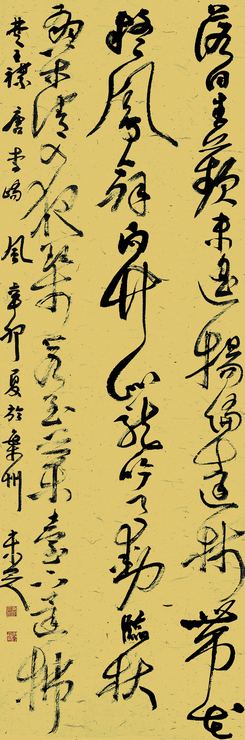 落日生蘋末遥揚徧遠林帶花
疑鳳舞向竹似龍吟月動臨秋
扇松清入夜琴若至蘭臺下還拂
楚王襟 唐李嶠 風 辛卯夏於 州